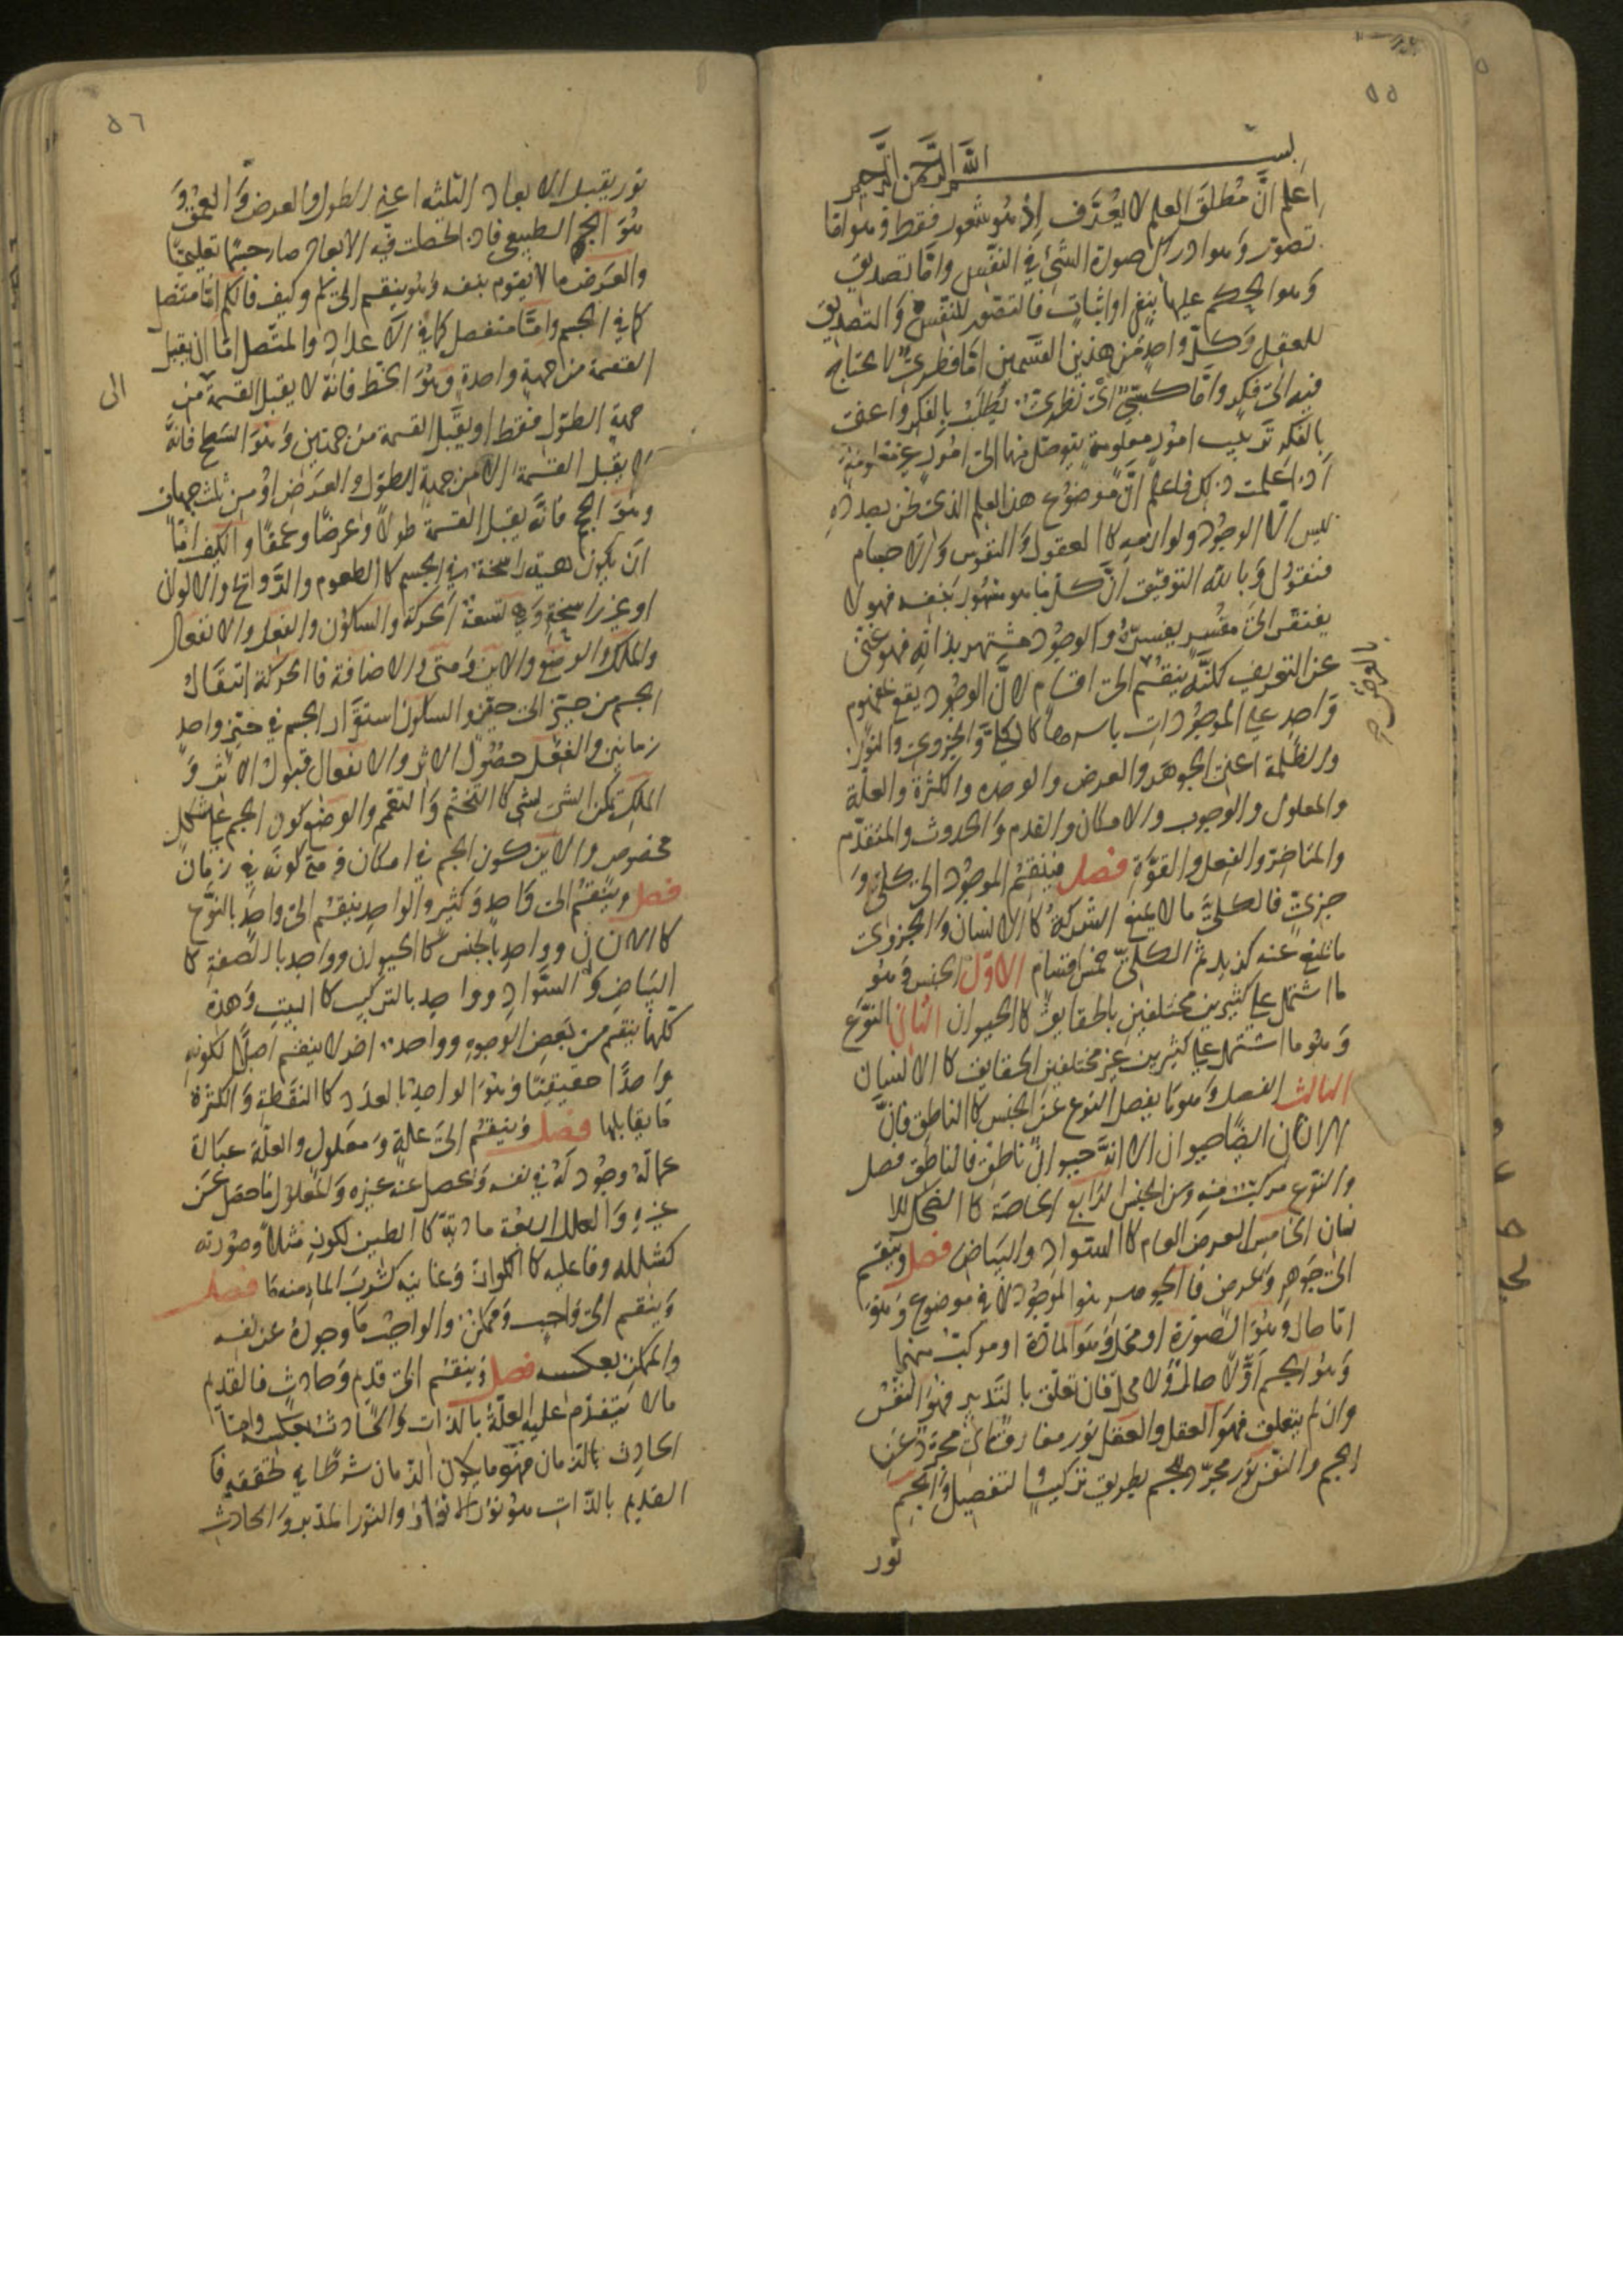 ٥٥
بسم الله الرحمن الرحيم
اعلم انّ مُطلقَ العلم لا يُعَرَّف إذ هو شعور فقط وهو امّا
تصوّر وهو ادراك صورة الشئ في النّفس وامّا تصديق
وهو الحكم عليها بنفى او اثبات فالتصّور للنّفس والتصديق
للعقل وكلّ واحدٍ من هذين القسمين امّا فطرىٌّ لا يحتاج
فيه الى فكرٍ وامّا كسبىٌّ اىْ نظرىٌّ يُطلَبُ بالفكر واعنى
بالفكر ترتيب امُورٍ معلومة يتوصّل منها الى امُور غير معلومةٍ
اذا علمت ذلك فاعلم انّ موضوع هذا العلم الذى نحن بصدده
ليس الّا الوجُود ولوازمه كالعقول والنفوس والاجسام
فنقولُ وبالله التوفيق انّ كلّ ما هو مشهُور بنفسه فهو لا
يفتقر الى مفسّر يفسّرهُ والوجُود مشتهر بذاته فهو غنىّ
عن التعريف لكنّه ينقسُم الى اقسام لانّ الوجُود يقع بمفهوم
واحدٍ على الموجُودات باسرها كالكلىّ والجزوى والنّور
بالعرض صح
والظّلمة اعنى الجوهر والعرض والوحده والكثرة والعلّة
والمعلول والوجوب والامكان والقدم والحدوث والمتقدّم
والمتاخر والفعل والقوّة فصل فينقسُم الموجُود الى كلىّ و
جزىّ فالكلىُّ ما لا يمنع الشركةُ كالانسان والجزوى
ما يمنع عنه كزيد ثمّ الكلىّ خمس اقسام الاوّل الجنس وهو
ما اشتمل على كثيرين مختلفين بالحقايق كالحيوان الثانى النوّع
وهو ما اشتمل على كثيرين غير مختلفين الحقايق كالانسان
الثالث الفصل وهو ما يفصل النوع عن الجنس كالناطق فانّ
الانسان ايضًا حيوان الا انّه حيوانٌ ناطق فالناطق فصل
والنوّع مركبّ منه ومن الجنس الرّابع الخاصّة كالضحك للا
نسان الخامس العرض العام كالسّواد والبَياض فصل وينقسم
الى جَوهرٍ وَعرض فالجوهر هو الموجُود لا في موضوع وهو
امّا حال وهُو الصّورة او محل وهو المادّة او مركبّ منهما
وهُو الجسم اوْ لا حالّ ولا محل فان تعلق بالتّدبير فهُو النفس
وان لم يتعلق فهو العقل والعقل نور مفارق اى مجرّد عن
الجسم والنفس نور مجرّد للجسم بطريق تركيب التفصيل والجسم
نور
٥٦
نور يقبل الابعاد الثلثه اعنى الطول والعرض والعمق و
هُوَ الجسم الطبيعى فاذا حصلت فيه الابعاد صار جسمًا تعليميًّا
والعَرَض ما لا يقوم بنفسه وهو ينقسم الى كم وكيف فالكم امّا متصل
كما في الجسم وامّا منفصل كما في الاعداد والمتّصل امّا ان يقبل
القسمة من جهةٍ واحدةٍ وهُوَ الخطّ فانّه لا يقبل القسمة من
الى
جهة الطّول فقط او يقبل القسمة من جهتين وهو السّطح فانّه
لا يقبل القسمة الا من جهة الطّول والعرَض اوْ من ثلث جهات
وهو الجسم فانّه يقبل القسمة طولاً وعرضًا وعمقًا والكيف امّا
ان يكون هيئة راسخة في الجسم كالطعوم والرّوائح والالوان
او غير راسخةٍ وهى تسعةٌ الحركة والسكون والفعل والانفعال
والملك والوضع والاين ومتى والاضافة فالحركة انتقالُ
الجسم من حيّزٍ الى حيّزٍ والسكون استقرار الجسم في حيّز واحدٍ
زمانين والفعل حصُول الاثر والانفعال قبولُ الاثر و
الملك تمكن الشئ لشئ كالتّختّم والتّقمم والوضع كون الجسم على شكلٍ
مخصوص والاين كون الجسم في امكان ومتى كونه في زمان
فصل وينقسُم الى واحدٍ وكثيرٍ والواحد ينقسم الى واحدٍ بالنوّع
كالانسان وواحدٍ بالجنس كالحيوان وواحدٍ بالصّفة كا
البَياض والسَّواد وواحد بالتركيب كالبيت وهذه
كلّها ينقسم من بعض الوجوه وواحد اخر لا ينقسم اصلًا لكونه
واحدًا حقيقيًّا وهو الواحد بالعدد كالنقطة والكثرة
ما يقابلها فصل وينقسُم الى علةٍ ومعلولٍ والعلّة عبارة
عمّا لهُ وجُود له في نفسه ويحصل عنه غيره والمعلول ما حصَل عن
غيره والعلل اربعة ماديّة كالطين لكوزٍ مثلاً وصُورته
كشكله وفاعليه كالكواز وغائيه كشرب الماء منه فصل
وينقسم الى واجبٍ وممكن والواجب ما وجودُهُ عن نفسه
والممكن بعكسه فصل وينقسُم الى قديم وحادثٍ فالقديم
ما لا يتقدّم عليه العلّة بالذات والحادثُ بعكسه وامّا
الحادث بالزّمان فهو ما يكون الزّمان شرطًا في تحققه فا
القديم بالذّات هو نور الانوار والنّور المدّبر والحادث